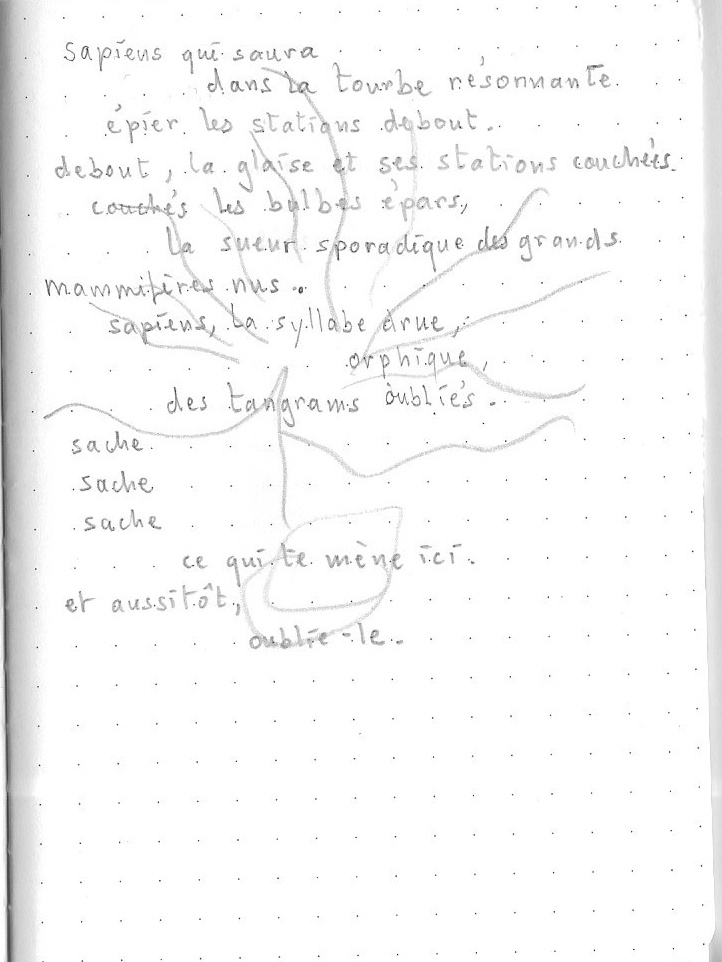 sapiens qui saura
dans la tourbe résonnante.
épier les stations debout.
debout, la glaise et ses stations couchées.
couchés les bulbes épars,
la sueur sporadique des grands
mammifères nus.
sapiens, la syllabe drue,
orphique,
des tangrams oubliés.
sache
sache
sache
ce qui te mène ici.
et aussitôt,
oublie-le.